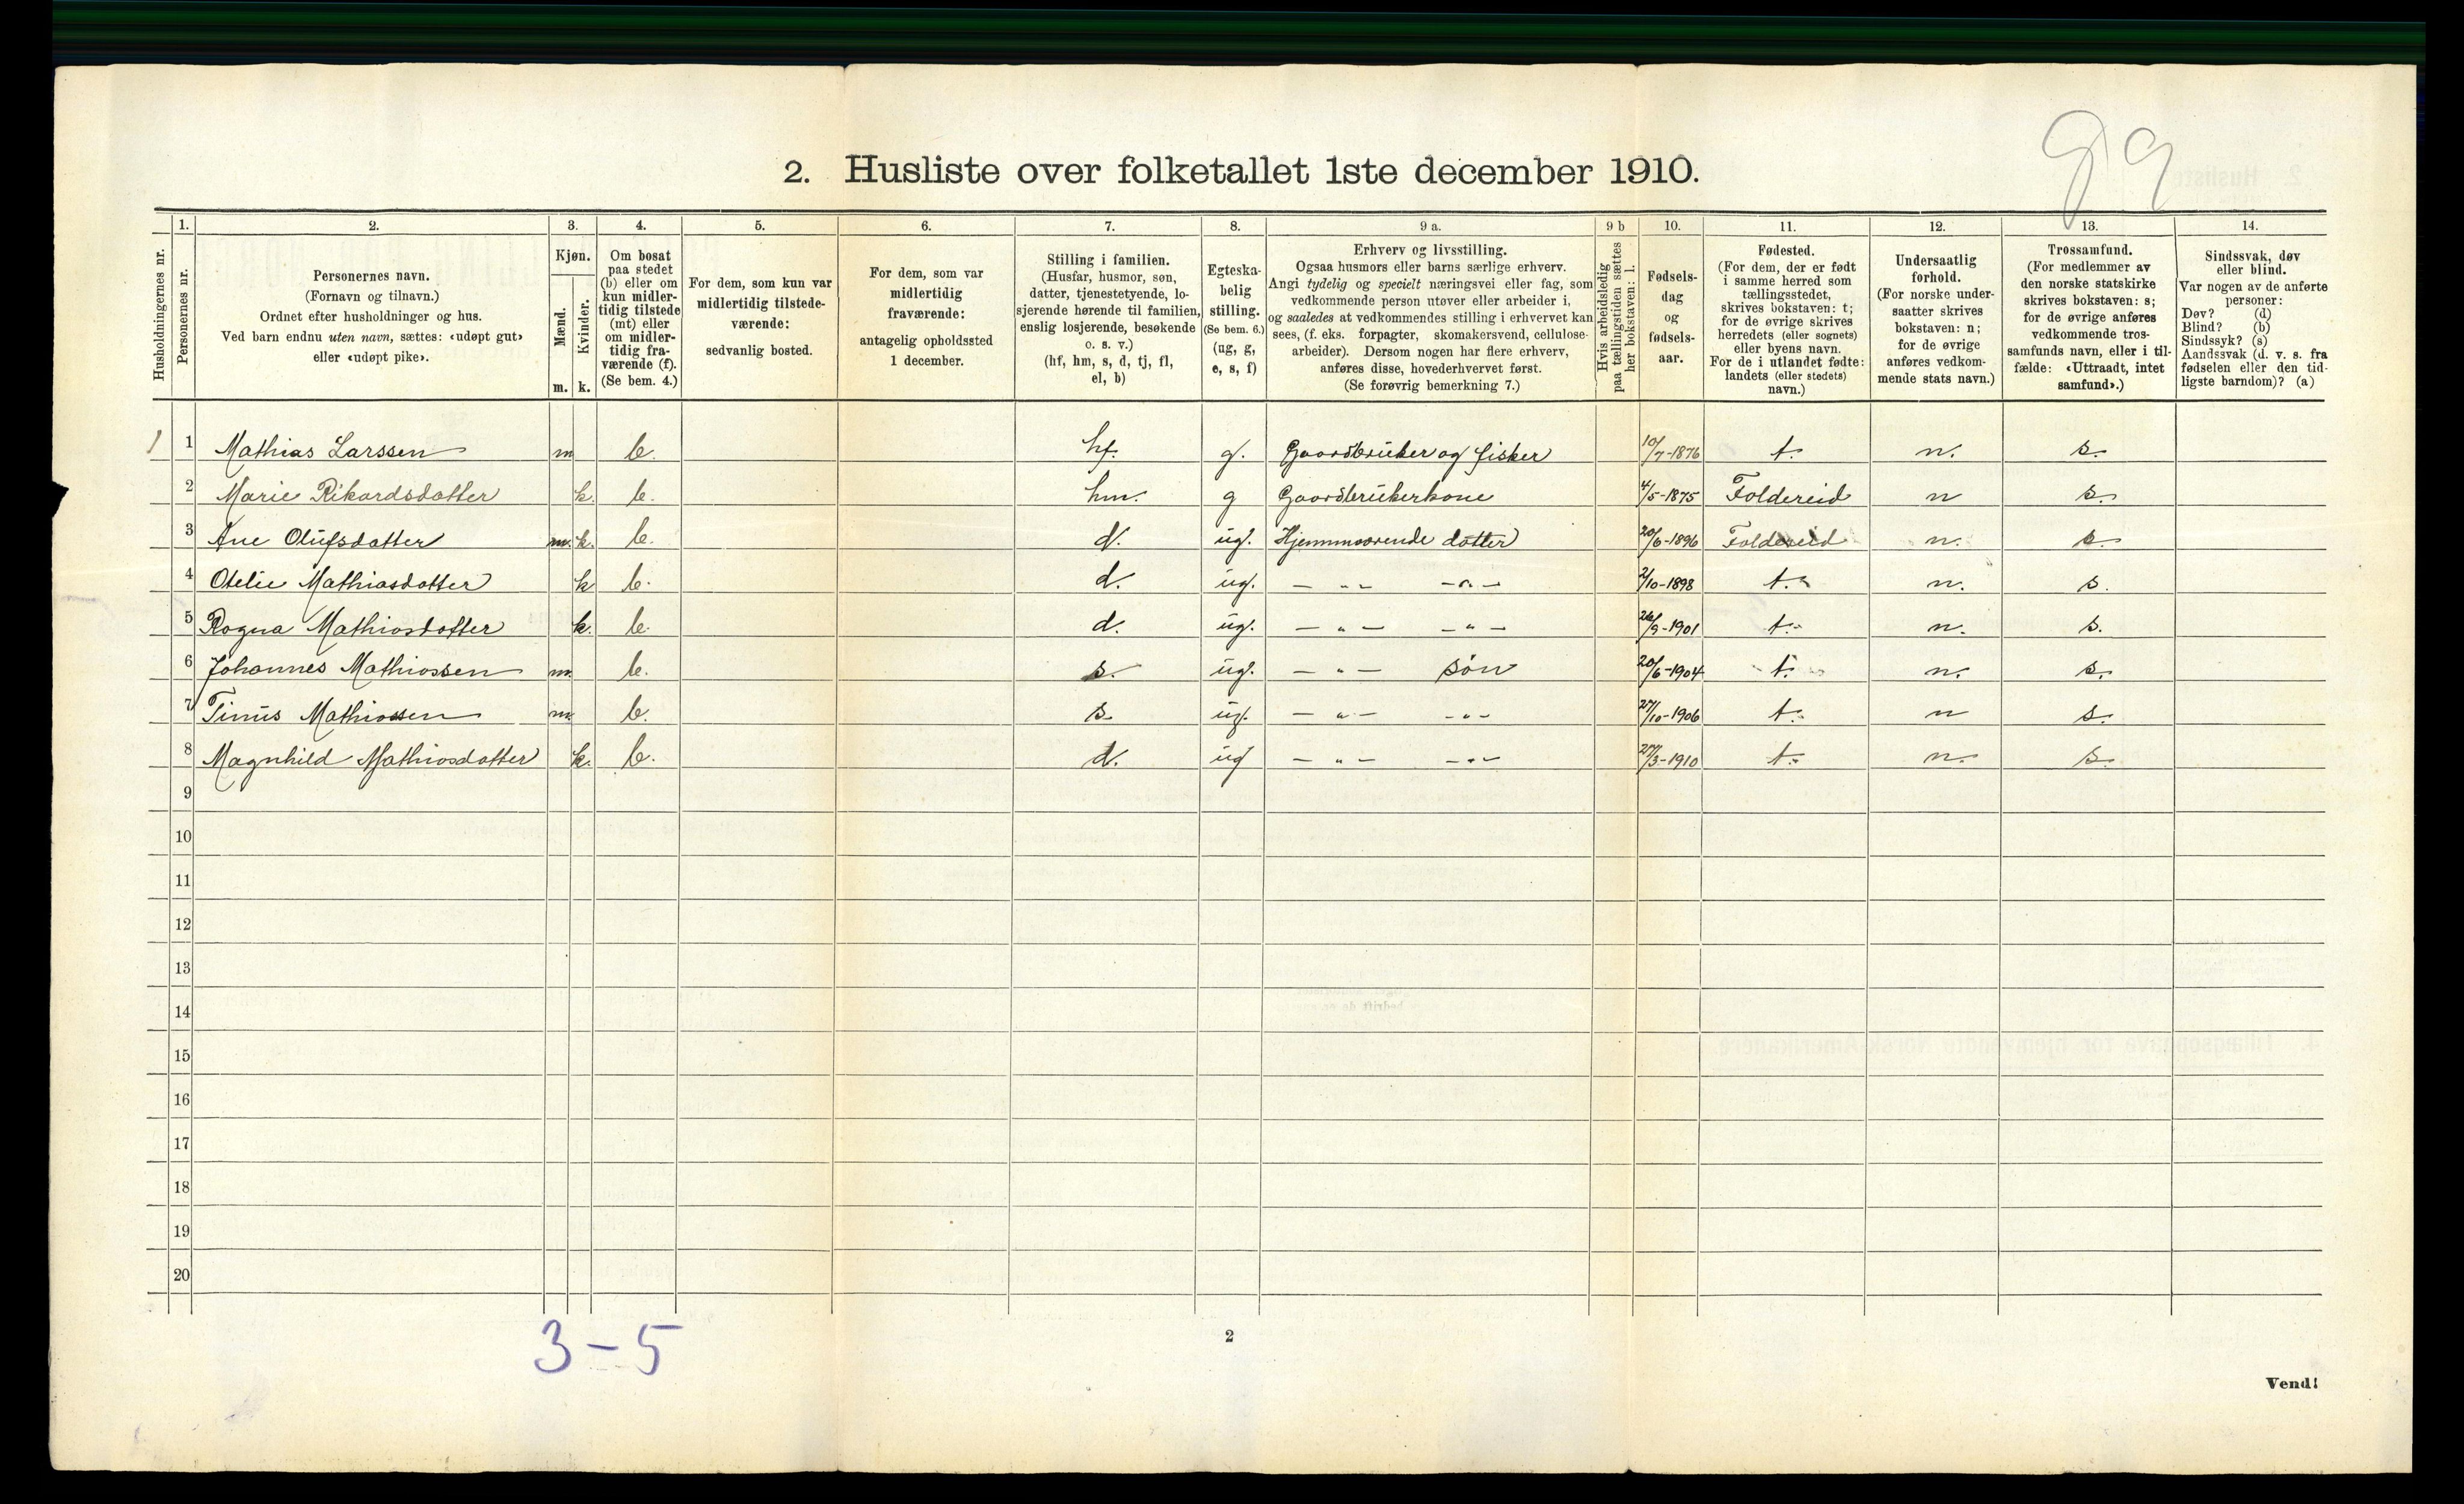 99
2. Husliste over folketallet 1ste december 1910.
Husholdningernes nr.
1.
Personernes nr.
2.
Personernes navn.
(Fornavn og tilnavn.)
Ordnet efter husholdninger og hus.
Ved barn endnu uten navn, sættes: «udøpt gut»
eller «udøpt pike».
3.
Kjøn.
Mænd.
Kvinder.
m. k.
4.
Om bosat
paa stedet
(b) eller om
kun midler-
tidig tilstede
(mt) eller
om midler-
tidig fra-
værende (f).
(Se bem. 4.)
5.
For dem, som kun var
midlertidig tilstede-
værende:
sedvanlig bosted.
6.
For dem, som var
midlertidig
fraværende:
antagelig opholdssted
1 december.
7.
Stilling i familien.
(Husfar, husmor, søn,
datter, tjenestetyende, lo-
sjerende hørende til familien,
enslig losjerende, besøkende
o. s. v.)
(hf, hm, s, d, tj, fl,
el, b)
8.
Egteska-
belig
stilling.
(Se bem. 6.)
(ug, g,
e, s, f)
9 a.
Erhverv og livsstilling.
Ogsaa husmors eller barns særlige erhverv.
Angi tydelig og specielt næringsvei eller fag, som
vedkommende person utøver eller arbeider i,
og saaledes at vedkommendes stilling i erhvervet kan
sees, (f. eks. forpagter, skomakersvend, cellulose-
arbeider). Dersom nogen har flere erhverv,
anføres disse, hovederhvervet først.
(Se forøvrig bemerkning 7.)
9 b
Hvis arbeidsledig
paa tællingstiden sættes
her bokstaven: l.
10.
Fødsels-
dag
og
fødsels-
aar.
11.
Fødested.
(For dem, der er født
i samme herred som
tællingsstedet,
skrives bokstaven: t;
for de øvrige skrives
herredets (eller sognets)
eller byens navn.
For de i utlandet fødte:
landets (eller stedets)
navn.)
12.
Undersaatlig
forhold.
(For norske under-
saatter skrives
bokstaven: n;
for de øvrige
anføres vedkom-
mende stats navn.)
13.
Trossamfund.
(For medlemmer av
den norske statskirke
skrives bokstaven: s;
for de øvrige anføres
vedkommende tros-
samfunds navn, eller i til-
fælde: «Uttraadt, intet
samfund».)
14.
Sindssvak, døv
eller blind.
Var nogen av de anførte
personer:
Døv? (d)
Blind? (b)
Sindssyk? (s)
Aandssvak (d. v. s. fra
fødselen eller den tid-
ligste barndom)? (a)
1 1 Mathias Larssen m b. hf. g. Gaardbruker og fisker 10/7-1876 t. n. s.
2 Marie Rikardsdatter k. b. hm. g Gaardbrukerkone 4/5-1875 Foldereid n s.
3 Ane Olufsdatter m. k. b. d. ug. Hjemmværende datter 20/6-1896 Foldereid n. s.
4 Otelie Mathiasdatter k b. d. ug. - „ - - „ - 2/10-1898 t. n. s.
5 Ragna Mathiasdatter k. b. d. ug. - „ - - „ - 26/9-1901 t. n. s.
6 Johannes Mathiassen m b. s. ug. - „ - søn 20/6-1904 t. n. s.
7 Tinus Mathiassen m b. s ug. - „ - - „ - 27/10-1906 t. n s.
8 Magnhild Mathiasdatter k. b. d. ug - „ - - „ - 27/3-1910 t. n. s.
9
10
11
12
13
14
15
16
17
18
19
20
3-5
2
Vend!